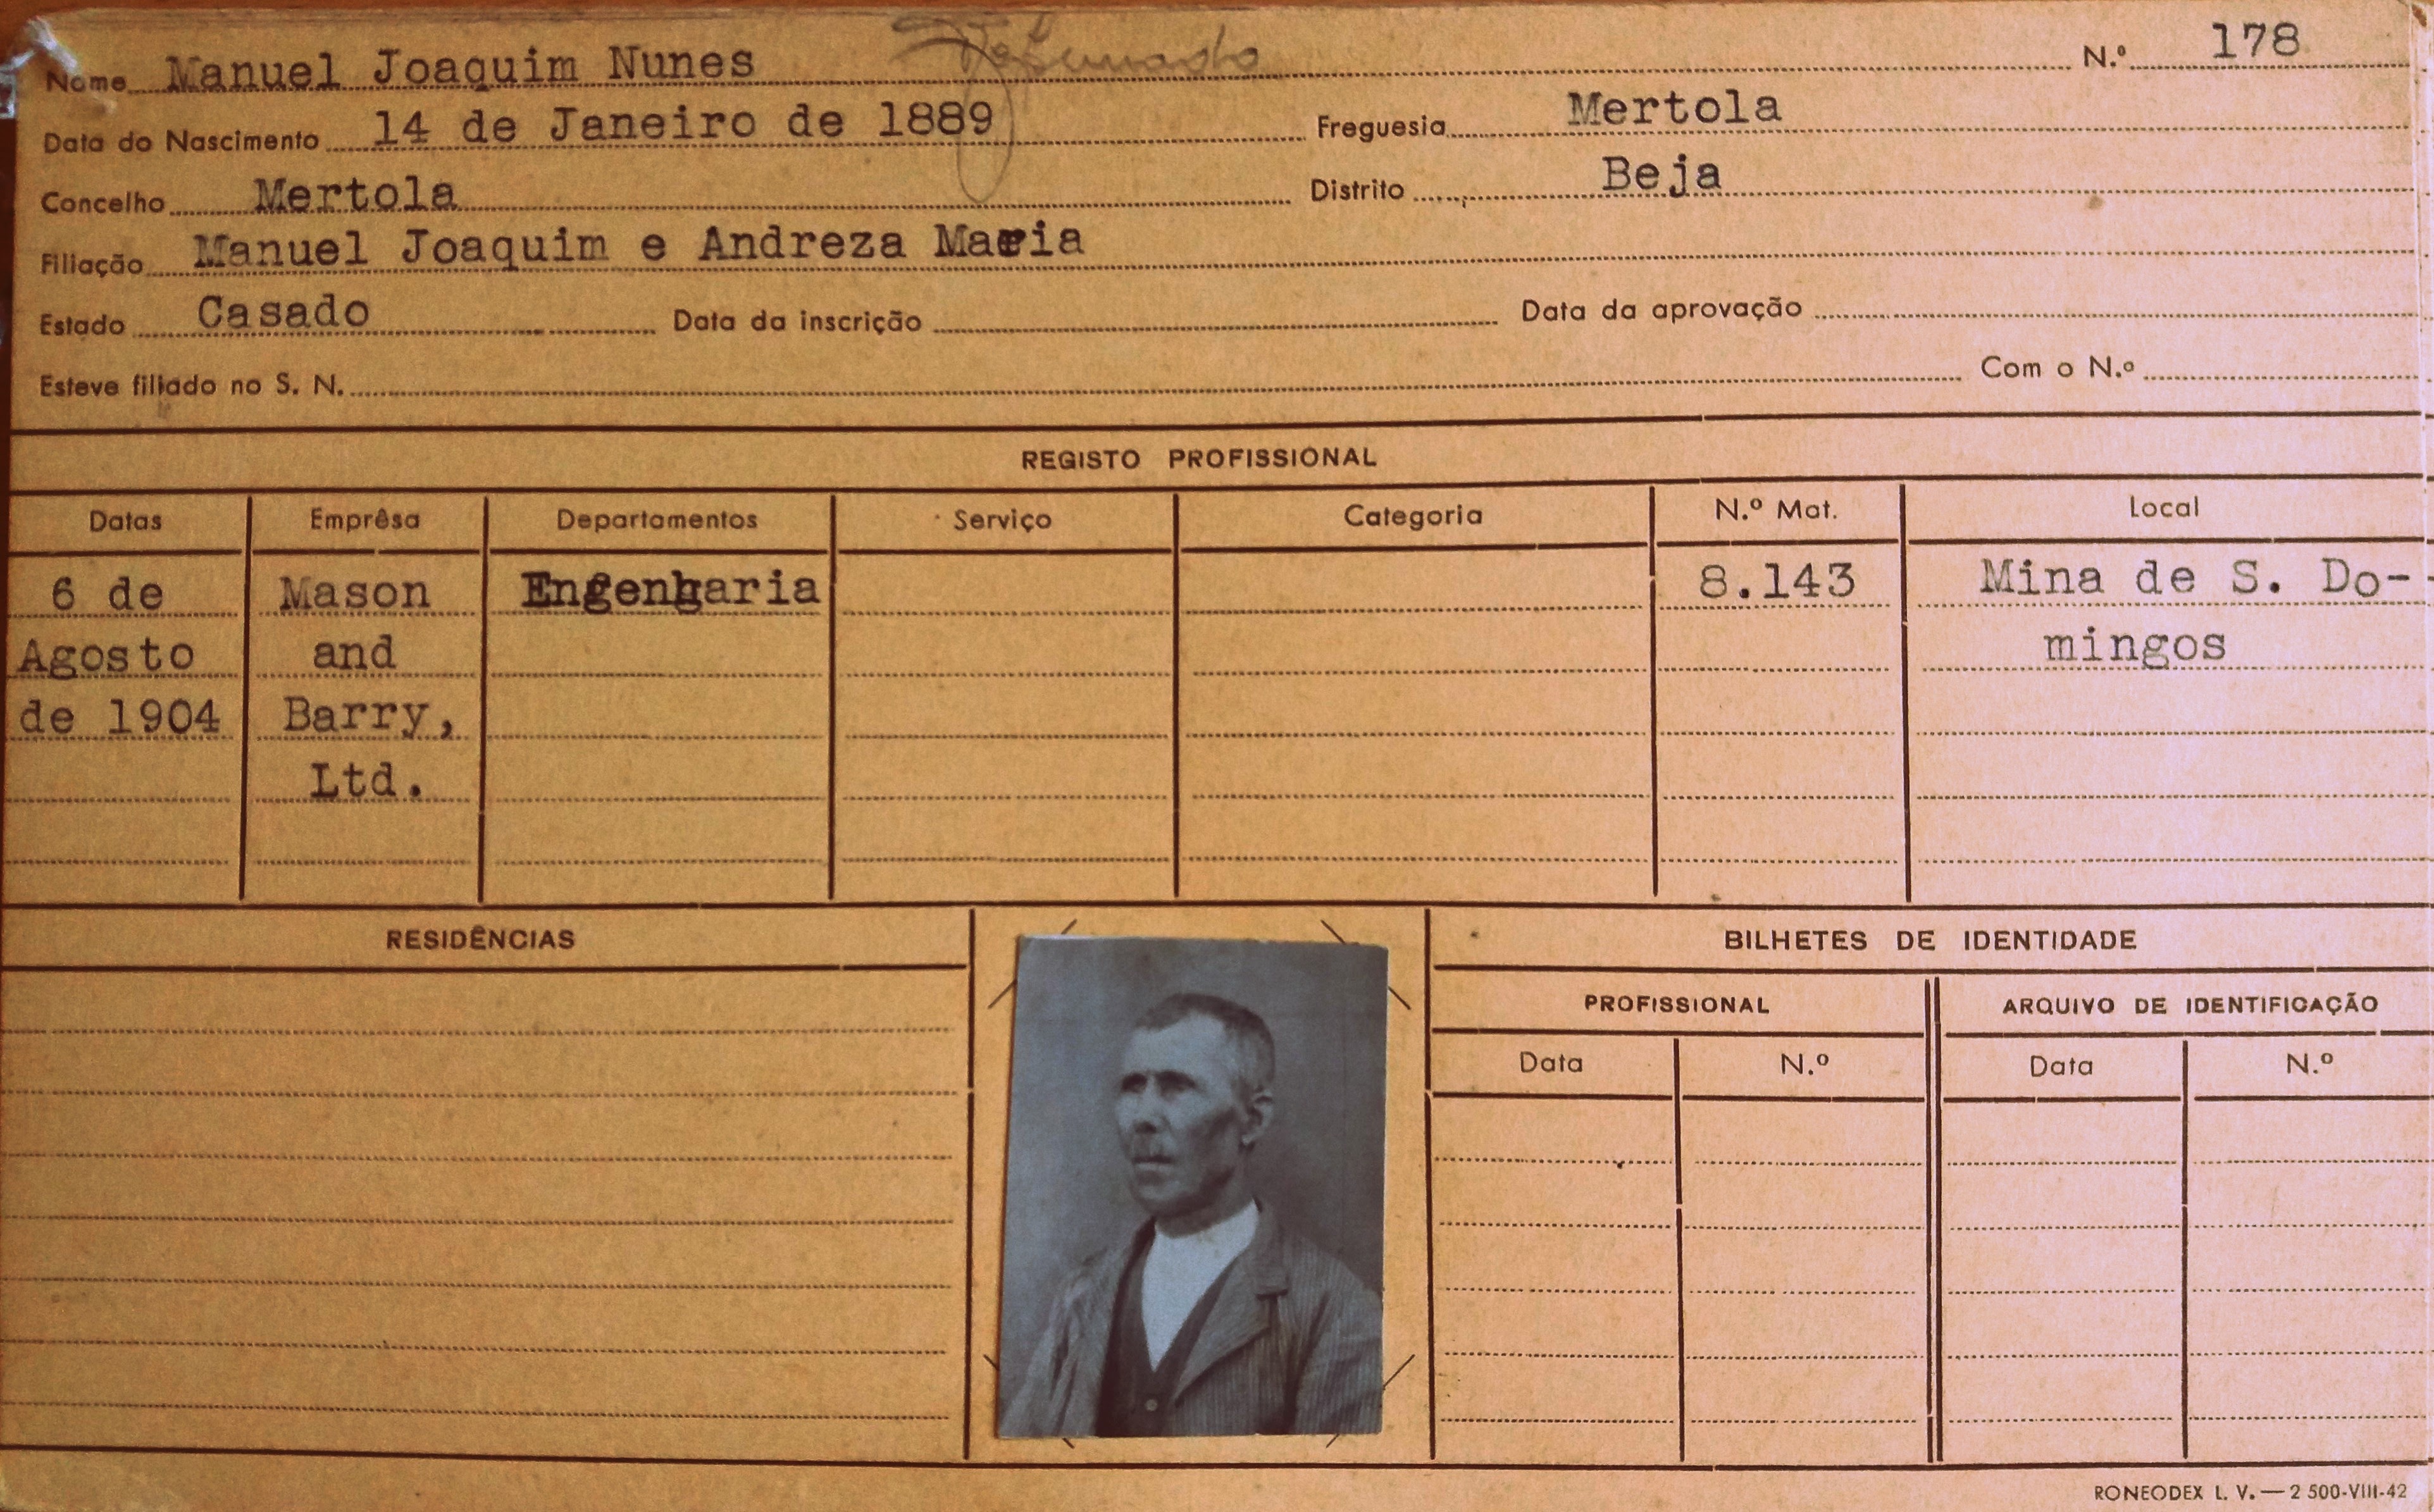 Nome Manuel Joaquim Nunes Reformado N.º 178
Data do Nascimento 14 de Janeiro de 1889 Freguesia Mertola
Concelho Mertola Distrito Beja
Filiação Manuel Joaquim e Andreza Maria
Estado Casado Data da inscrição Data da aprovação
Esteve filiado no S. N. Com o N.º
REGISTO PROFISSIONAL
Datas Emprêsa Departamentos Serviço Categoria N.º Mat. Local
6 de Mason Engenharia 8.143 Mina de S. Do-
Agosto and mingos
de 1904 Barry,
Ltd.
RESIDÊNCIAS BILHETES DE IDENTIDADE
PROFISSIONAL ARQUIVO DE IDENTIFICAÇÃO
Data N.º Data N.º
RONEODEX L. V. — 2 500-VIII-42